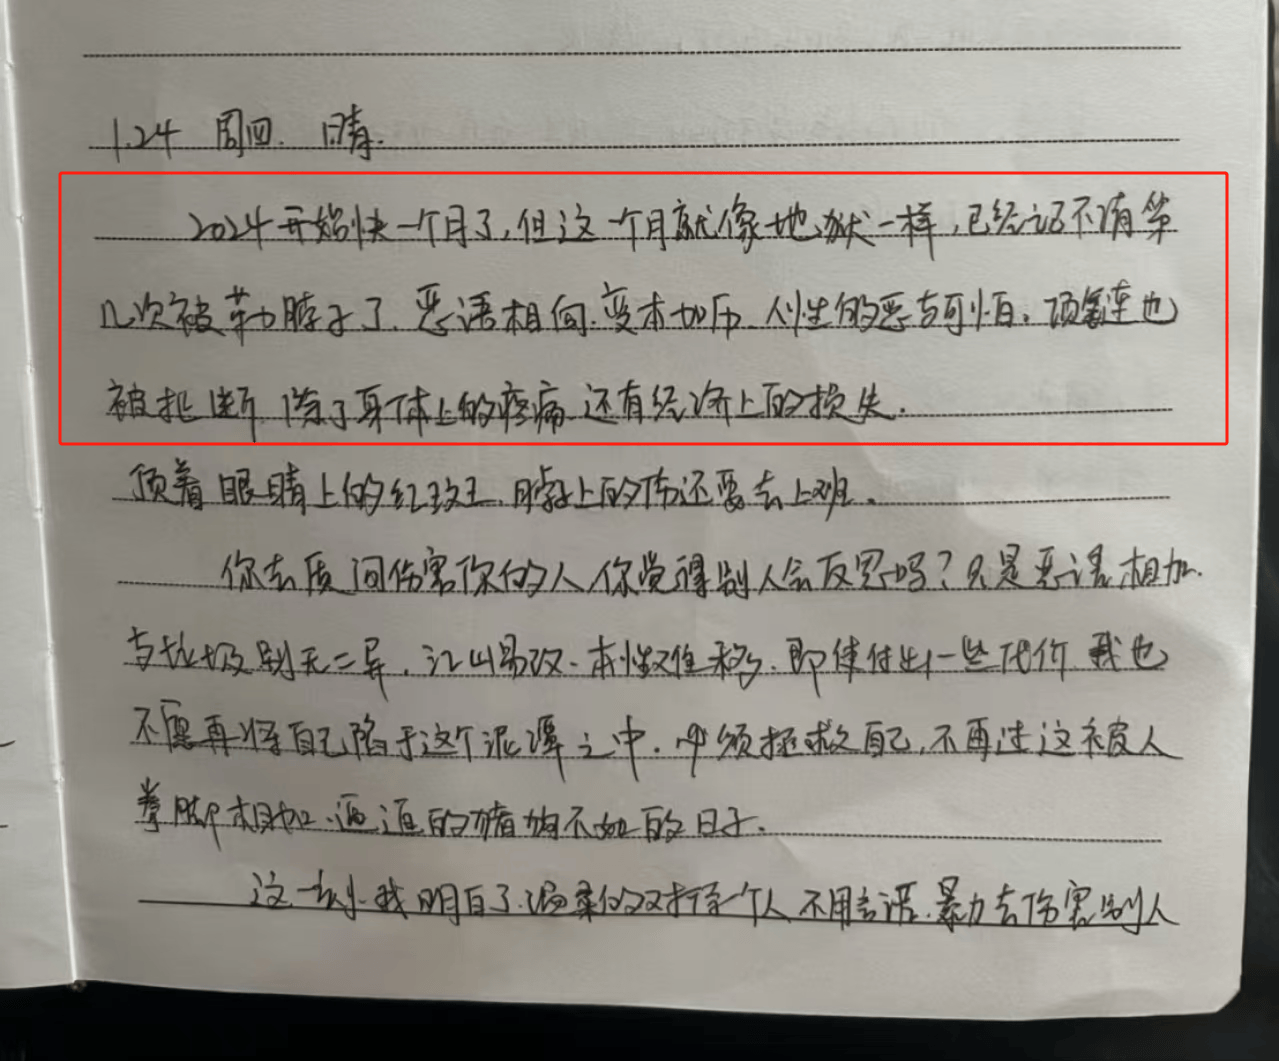 1.24 周四. 晴.
2024开始快一个月了,但这一个月就像地狱一样,已经记不清第
几次被勒脖子了.恶语相向.变本加厉.人性的恶与可怕。项链也
被扯断 除了身体上的疼痛 还有经济上的损失.
顶着眼睛上的红斑.脖子上的伤还要去上班.
你去质问伤害你的人你觉得别人会反思吗?只是恶语相加.
与垃圾别无二异,江山易改.本性难移.即使付出一些代价 我也
不愿再将自己陷于这个泥潭之中.必须拯救自己,不再过这被人
拳脚相加.逼逼的猪狗不如的日子.
这一刻.我明白了.温柔的对待一个人不用言语.暴力去伤害别人